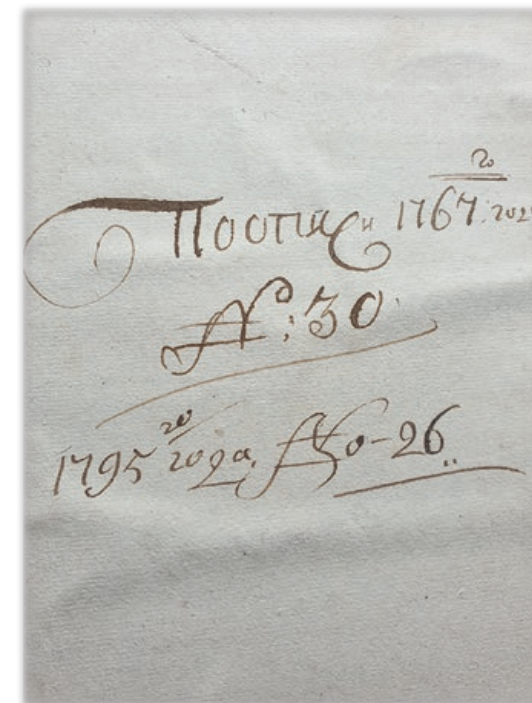 По описи 1767го год
№: 30
1795го года. No-26